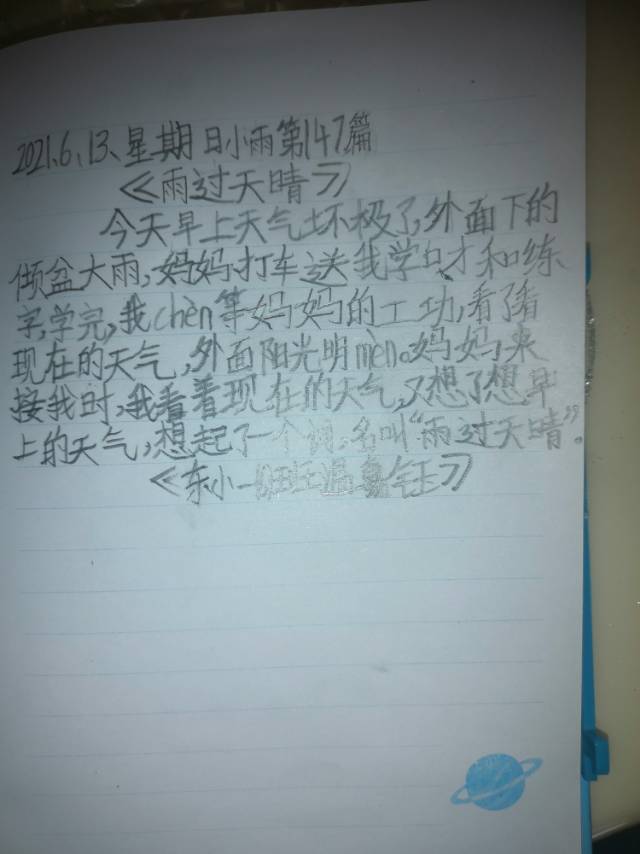 2021.6.13、星期日小雨第147篇
《雨过天晴》
今天早上天气坏极了,外面下的
倾盆大雨,妈妈打车送我学口才和练
字,学完,我chèn等妈妈的工功,看了看
现在的天气,外面阳光明mèn。妈妈来
接我时,我看着现在的天气,又想了想早
上的天气,想起了一个词,名叫“雨过天晴”。
《东小一